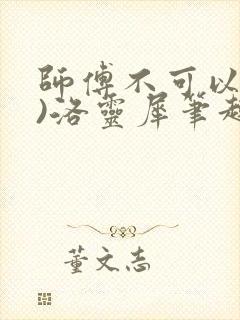 師傅不可以
)洛靈犀筆趣
董文志